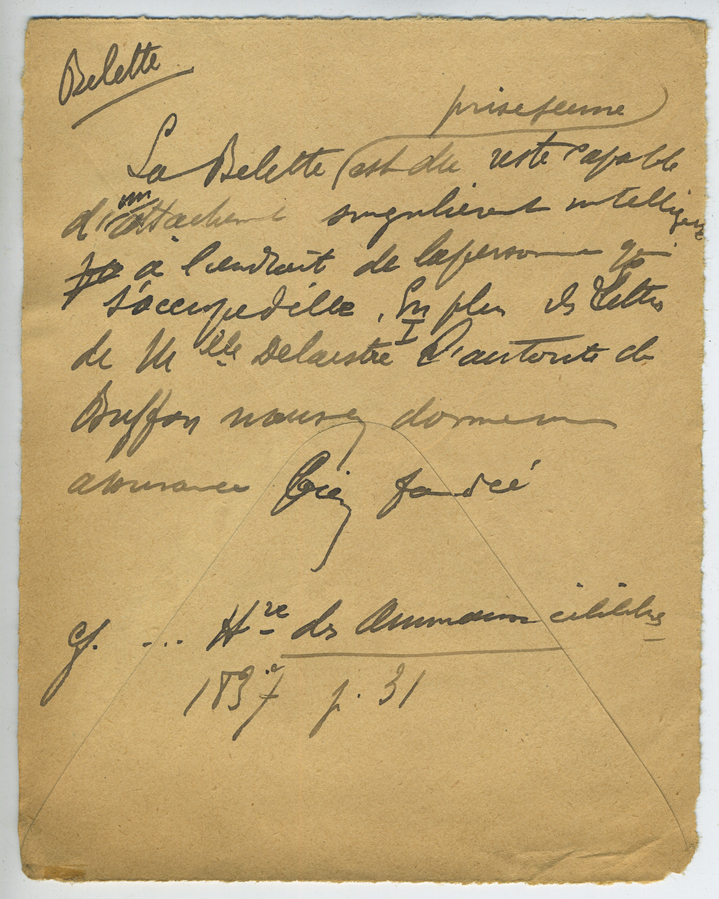 Belette
prise jeune
La Belette (est du reste capable
d'un attachement singulièrement intelligent
à l'endroit de la personne qui
s'occupe d'elle. En plus des lettres
de Mlle Delaistre l'autorité de
Buffon nous en donne une
assurance bien fondée
cf. ... Hre des Animaux célèbres
1837 p. 31